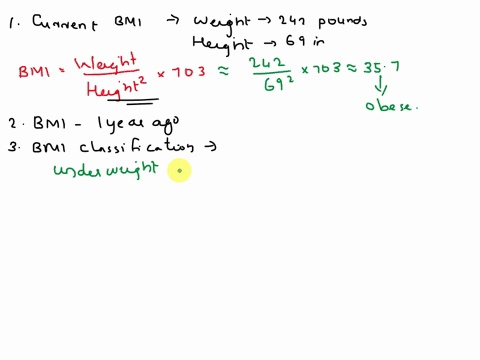 1. Current BMI → Weight → 242 pounds
Height → 69 in
BMI = Weight / Height² × 703 ≈ 242 / 69² × 703 ≈ 35.7
↓
obese.
2. BMI - 1 year ago
3. BMI classification →
underweight